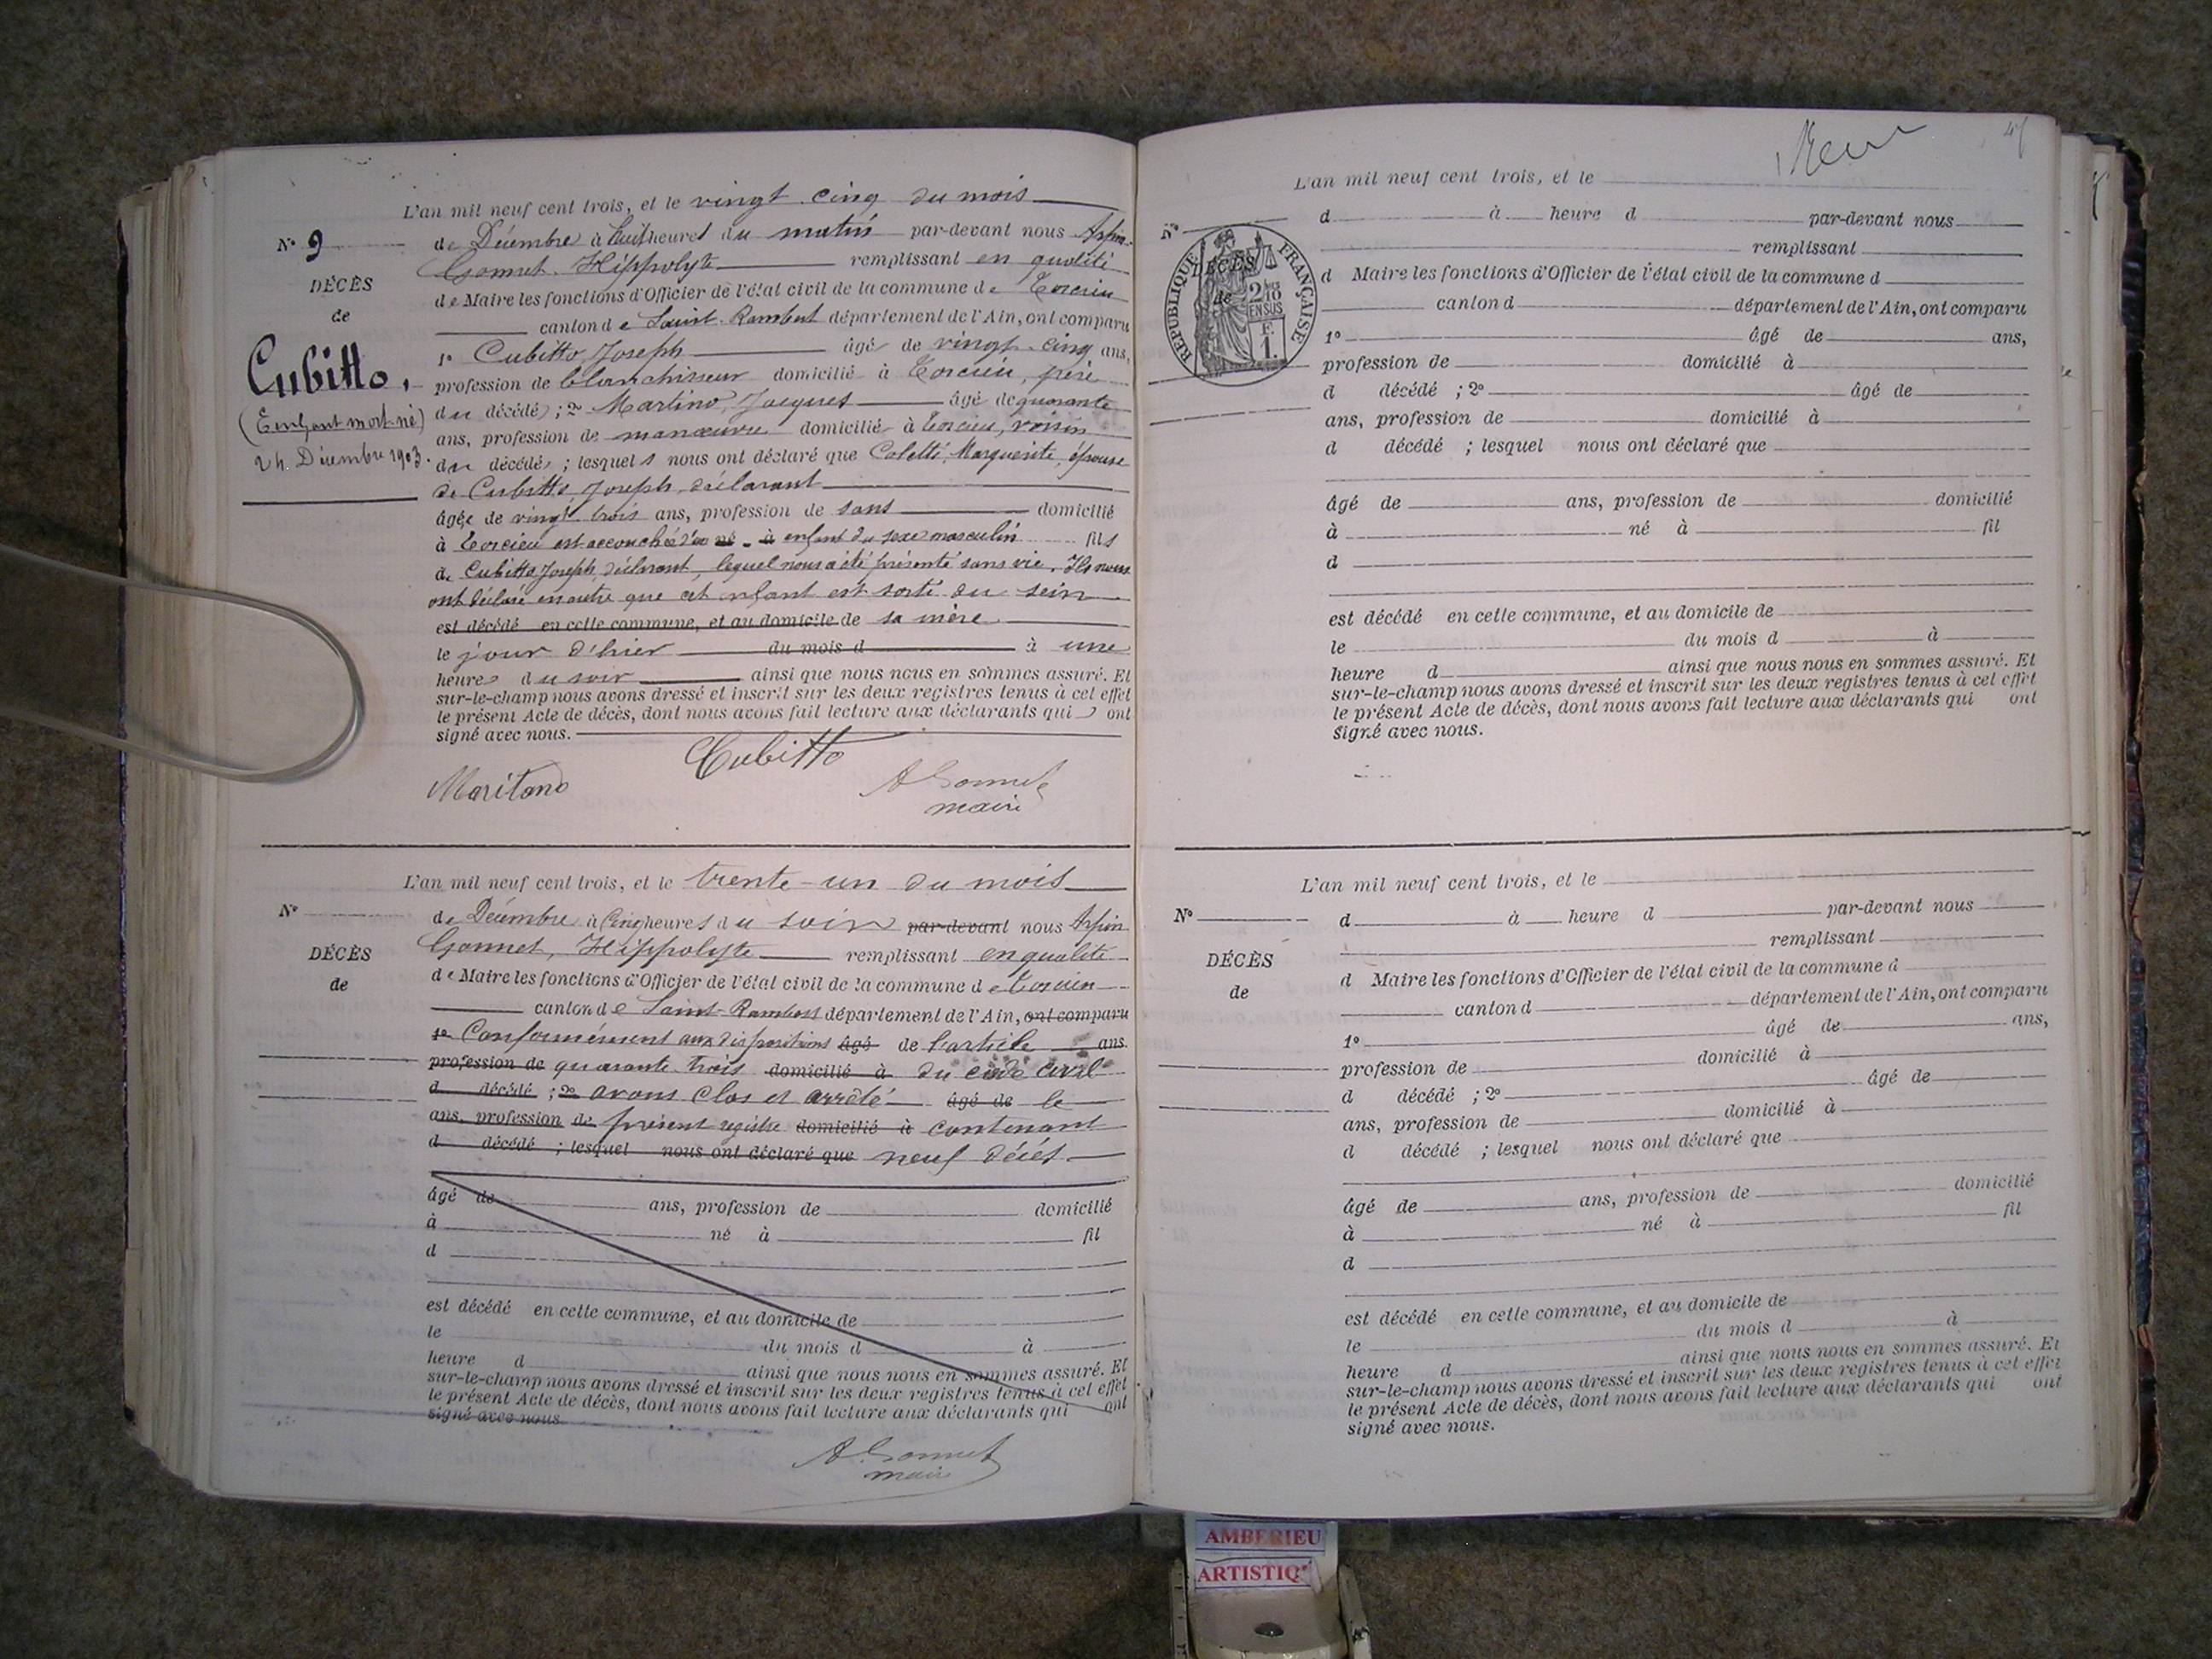 L'an mil neuf cent trois, et le vingt cinq du mois
N° 9
de Décembre à huit heures du matin par-devant nous Arpin-
Gonnet Hippolyte remplissant en qualité
DÉCÈS
de Maire les fonctions d'Officier de l'état civil de la commune de Torcieu
de
canton de Saint-Rambert département de l'Ain, ont comparu
Cubitto,
1° Cubitto, Joseph âgé de vingt-cinq ans,
profession de blanchisseur domicilié à Torcieu, père
(Enfant mort-né)
du décédé ; 2° Martino, Jacques âgé de quarante
ans, profession de manœuvre domicilié à Torcieu, voisin
24 Décembre 1903.
du décédé ; lesquels nous ont déclaré que Coletti, Marguerite, épouse
de Cubitto, Joseph, déclarant
âgée de vingt trois ans, profession de sans domicilié
à Torcieu est accouchée d'un né à enfant du sexe masculin fils
de Cubitto Joseph, déclarant, lequel nous a été présenté sans vie. Ils nous
ont déclaré en outre que cet enfant est sorti du sein
est décédé en cette commune, et au domicile de sa mère
le jour d'hier du mois d à une
heures du soir ainsi que nous nous en sommes assuré. Et
sur-le-champ nous avons dressé et inscrit sur les deux registres tenus à cet effet
le présent Acte de décès, dont nous avons fait lecture aux déclarants qui ont
signé avec nous.
Cubitto
Maritano
A Gonnet
maire
L'an mil neuf cent trois, et le trente-un du mois
N°
de Décembre à cinq heures du soir par-devant nous Arpin
Gonnet, Hippolyte remplissant en qualité
DÉCÈS
de Maire les fonctions d'Officier de l'état civil de la commune de Torcieu
de
canton de Saint-Rambert département de l'Ain, ont comparu
1° Conformément aux dispositions âgé de l'article ans
profession de quarante trois domicilié à du code civil
d décédé ; 2° avons clos et arrêté âgé de le
ans, profession de présent registre domicilié à contenant
d décédé ; lesquel nous ont déclaré que neuf décès
âgé de ans, profession de domicilié
à né à fil
d
est décédé en cette commune, et au domicile de
le du mois d à
heure d ainsi que nous nous en sommes assuré. Et
sur-le-champ nous avons dressé et inscrit sur les deux registres tenus à cet effet
le présent Acte de décès, dont nous avons fait lecture aux déclarants qui ont
signé avec nous
A Gonnet
maire
L'an mil neuf cent trois, et le
N°
d à heure d par-devant nous
remplissant
DÉCÈS
de
RÉPUBLIQUE FRANÇAISE
2/10 EN SUS
F.
1.
d Maire les fonctions d'Officier de l'état civil de la commune d
canton d département de l'Ain, ont comparu
1° âgé de ans,
profession de domicilié à
d décédé ; 2° âgé de
ans, profession de domicilié à
d décédé ; lesquel nous ont déclaré que
âgé de ans, profession de domicilié
à né à fil
d
est décédé en cette commune, et au domicile de
le du mois d à
heure d ainsi que nous nous en sommes assuré. Et
sur-le-champ nous avons dressé et inscrit sur les deux registres tenus à cet effet
le présent Acte de décès, dont nous avons fait lecture aux déclarants qui ont
signé avec nous.
L'an mil neuf cent trois, et le
N°
d à heure d par-devant nous
remplissant
DÉCÈS
d Maire les fonctions d'Officier de l'état civil de la commune d
de
canton d département de l'Ain, ont comparu
1° âgé de ans,
profession de domicilié à
d décédé ; 2° âgé de
ans, profession de domicilié à
d décédé ; lesquel nous ont déclaré que
âgé de ans, profession de domicilié
à né à fil
d
est décédé en cette commune, et au domicile de
le du mois d à
heure d ainsi que nous nous en sommes assuré. Et
sur-le-champ nous avons dressé et inscrit sur les deux registres tenus à cet effet
le présent Acte de décès, dont nous avons fait lecture aux déclarants qui ont
signé avec nous.
AMBERIEU
ARTISTIQ